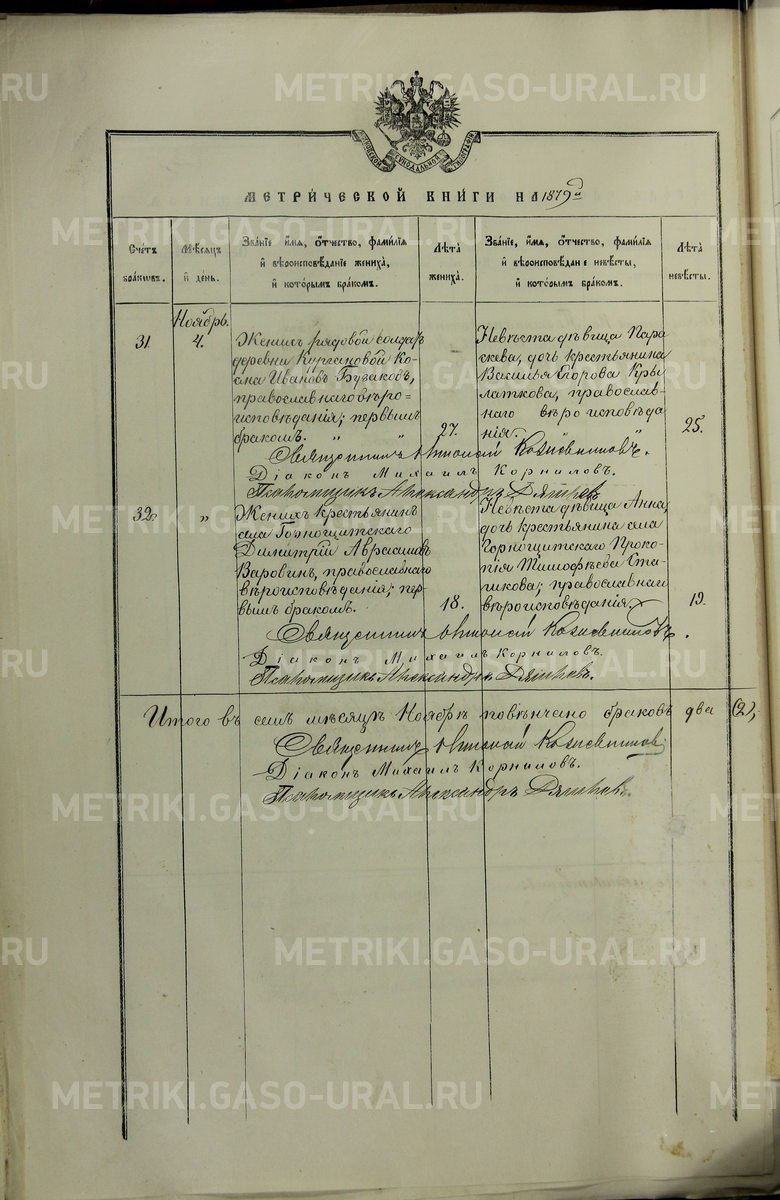 МЕТРИ́ЧЕСКОЙ КНИ́ГИ НА 1879 й
Счетъ бра́ковъ.
Мѣ́сяцъ и҆ де́нь.
Зва́нїе и҆́мѧ, ѻ҆́тчество, фами́лїѧ и҆ вѣроисповѣ́данїе жениха̀, и҆ кото́рымъ бра́комъ.
Лѣ́та жениха̀.
Зва́нїе, и҆́мѧ, ѻ҆́тчество, фами́лїѧ и҆ вѣроисповѣ́данїе невѣ́сты, и҆ кото́рымъ бра́комъ.
Лѣ́та невѣ́сты.
Ноябрь.
31.
4.
Женихъ рядовой солдатъ
деревни Кургановой
Ивановъ Бузаковъ,
православнаго вѣро=
исповѣданія; первымъ
бракомъ. „ „
27.
Невѣста дѣвица Пара
скева, дочь крестьянина
Василья Егорова Кры
латкова, православ-
наго вѣроисповѣда
нія. „
25.
Священникъ
Діаконъ Михаилъ Корниловъ.
Псаломщикъ Александръ
32.
„
Женихъ крестьянинъ
села Горнощитскаго
Димитрій Авраамовъ
Варовинъ, православнаго
вѣроисповѣданія; пер
вымъ бракомъ.
18.
Невѣста дѣвица Анна,
дочь крестьянина села
Горнощитскаго Проко
пія Тимофѣева Ста
рикова; православнаго
вѣроисповѣданія.
19.
Священникъ
Діаконъ Михаилъ Корниловъ.
Псаломщикъ Александръ
Итого въ семъ мѣсяцѣ Ноябрѣ повѣнчано браковъ два (2),
Священникъ
Діаконъ Михаилъ Корниловъ.
Псаломщикъ Александръ
METRIKI.GASO-URAL.RU